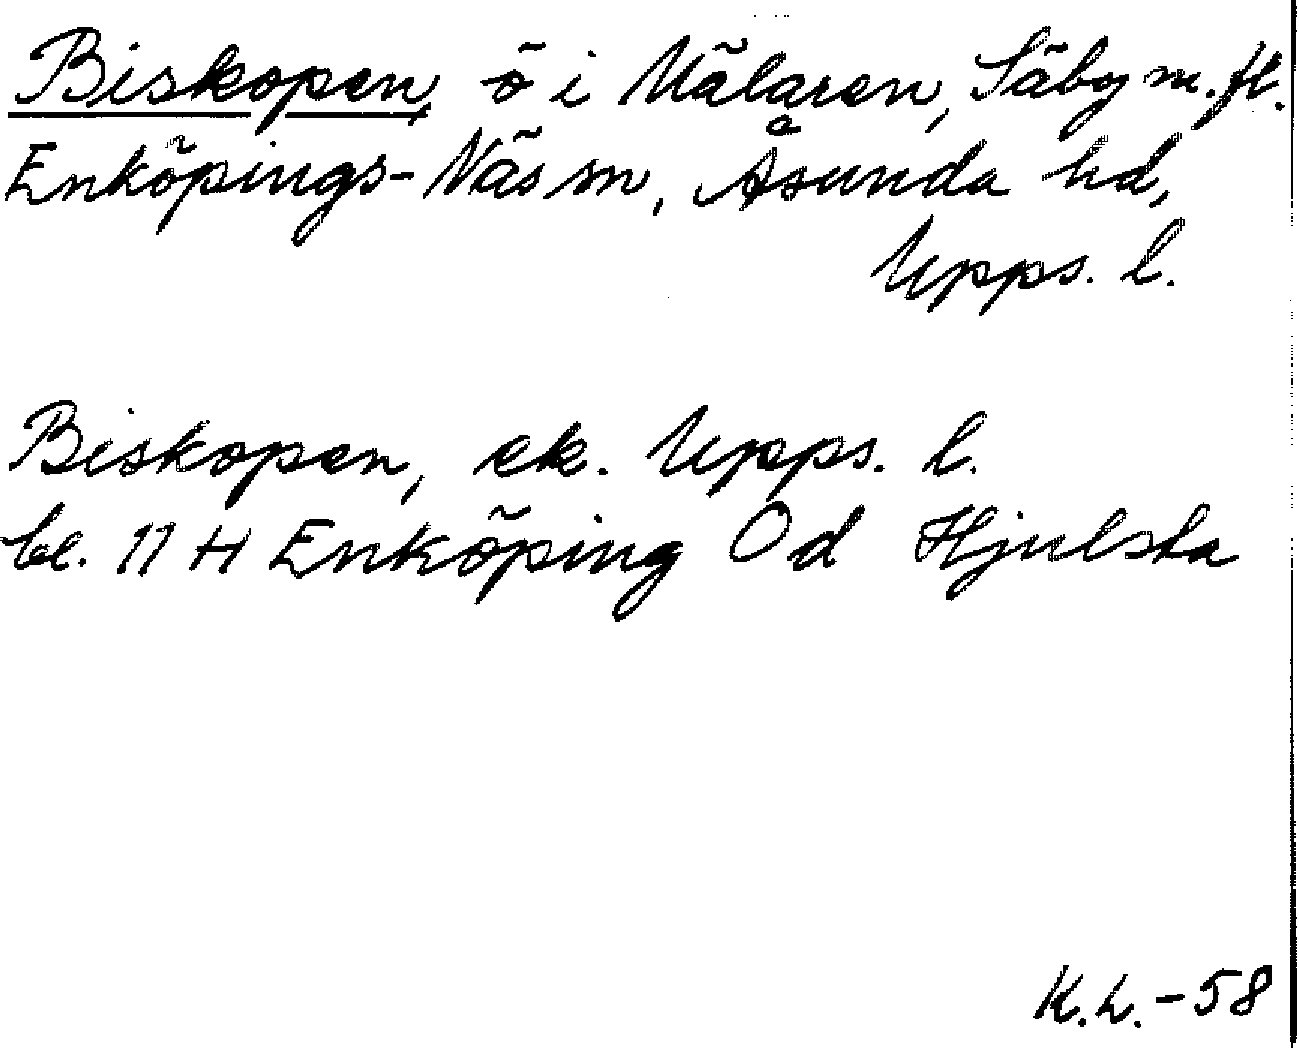 Biskopen, ö i Mälaren, Säby m.fl.
Enköpings-Näs sn, Åsunda hd,
Upps. l.
Biskopen, ek. Upps. l.
bl. 11 H Enköping Od Hjulsta
K.L.-58